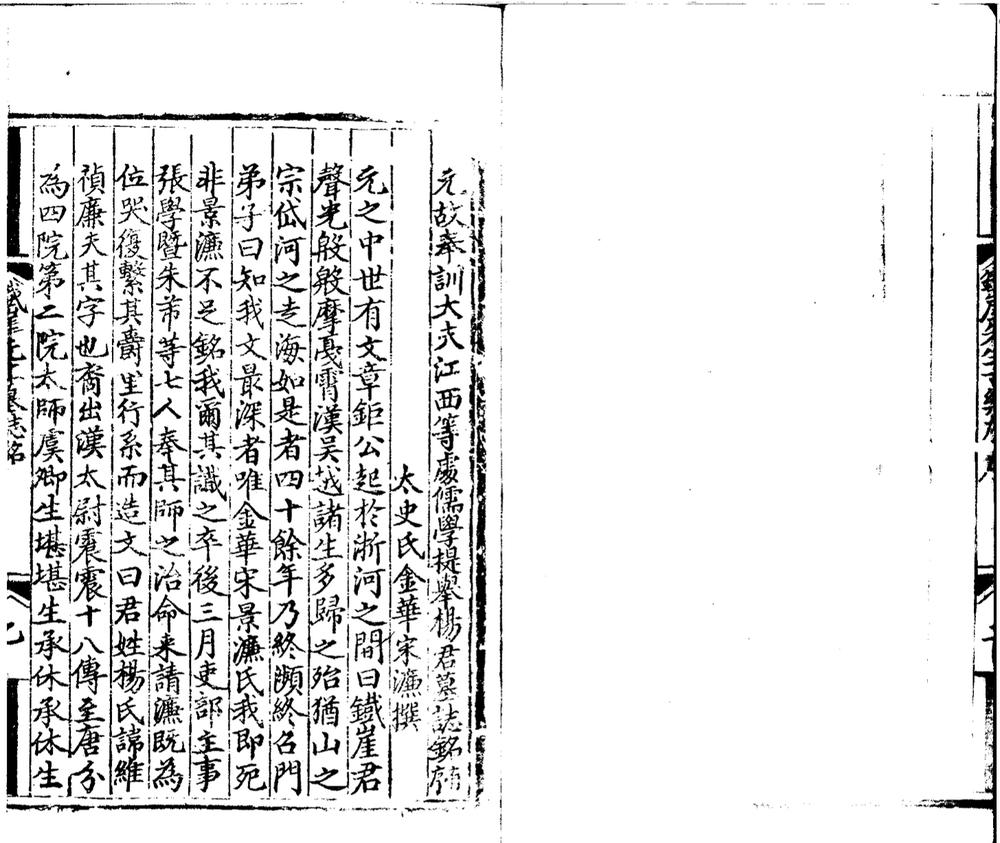 元故奉訓大夫江西等處儒學提舉楊君墓誌銘
太史氏金華宋濂撰
元之中世有文章鉅公起於浙河之間曰鐵崖君
聲光殷殷摩戛霄漢吳越諸生多歸之殆猶山之
宗岱河之走海如是者四十餘年乃終瀕終召門
弟子曰知我文最深者唯金華宋景濂氏我即死
非景濂不足銘我爾其識之卒後三月吏部主事
張學暨朱芾等七人奉其師之治命来請濂既為
位哭復繫其爵里行系而造文曰君姓楊氏諱維
禎廉夫其字也裔出漢太尉震震十八傳至唐分
為四院第二院太師虞卿生堪堪生承休承休生
墓志銘